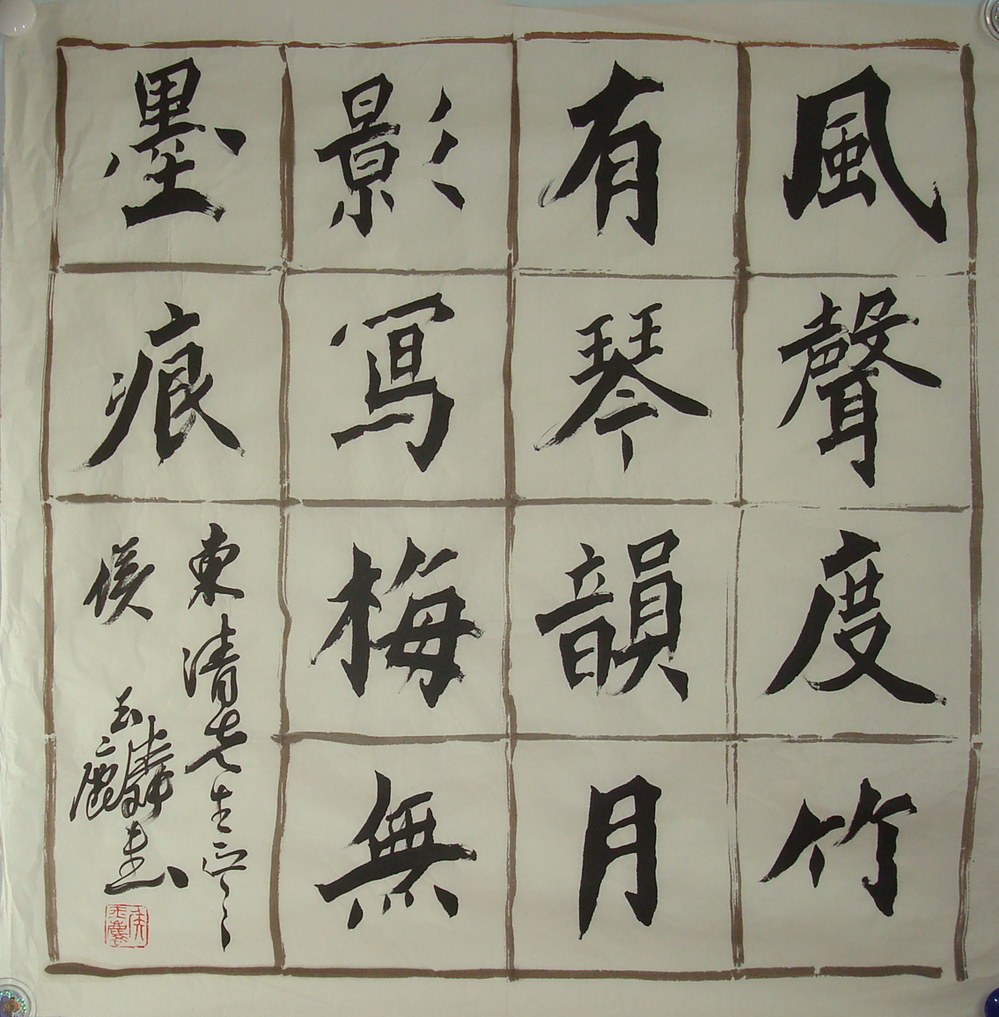 風聲度竹
有琴韻月
影寫梅無
墨痕
東清先生正之
侯玉麟書